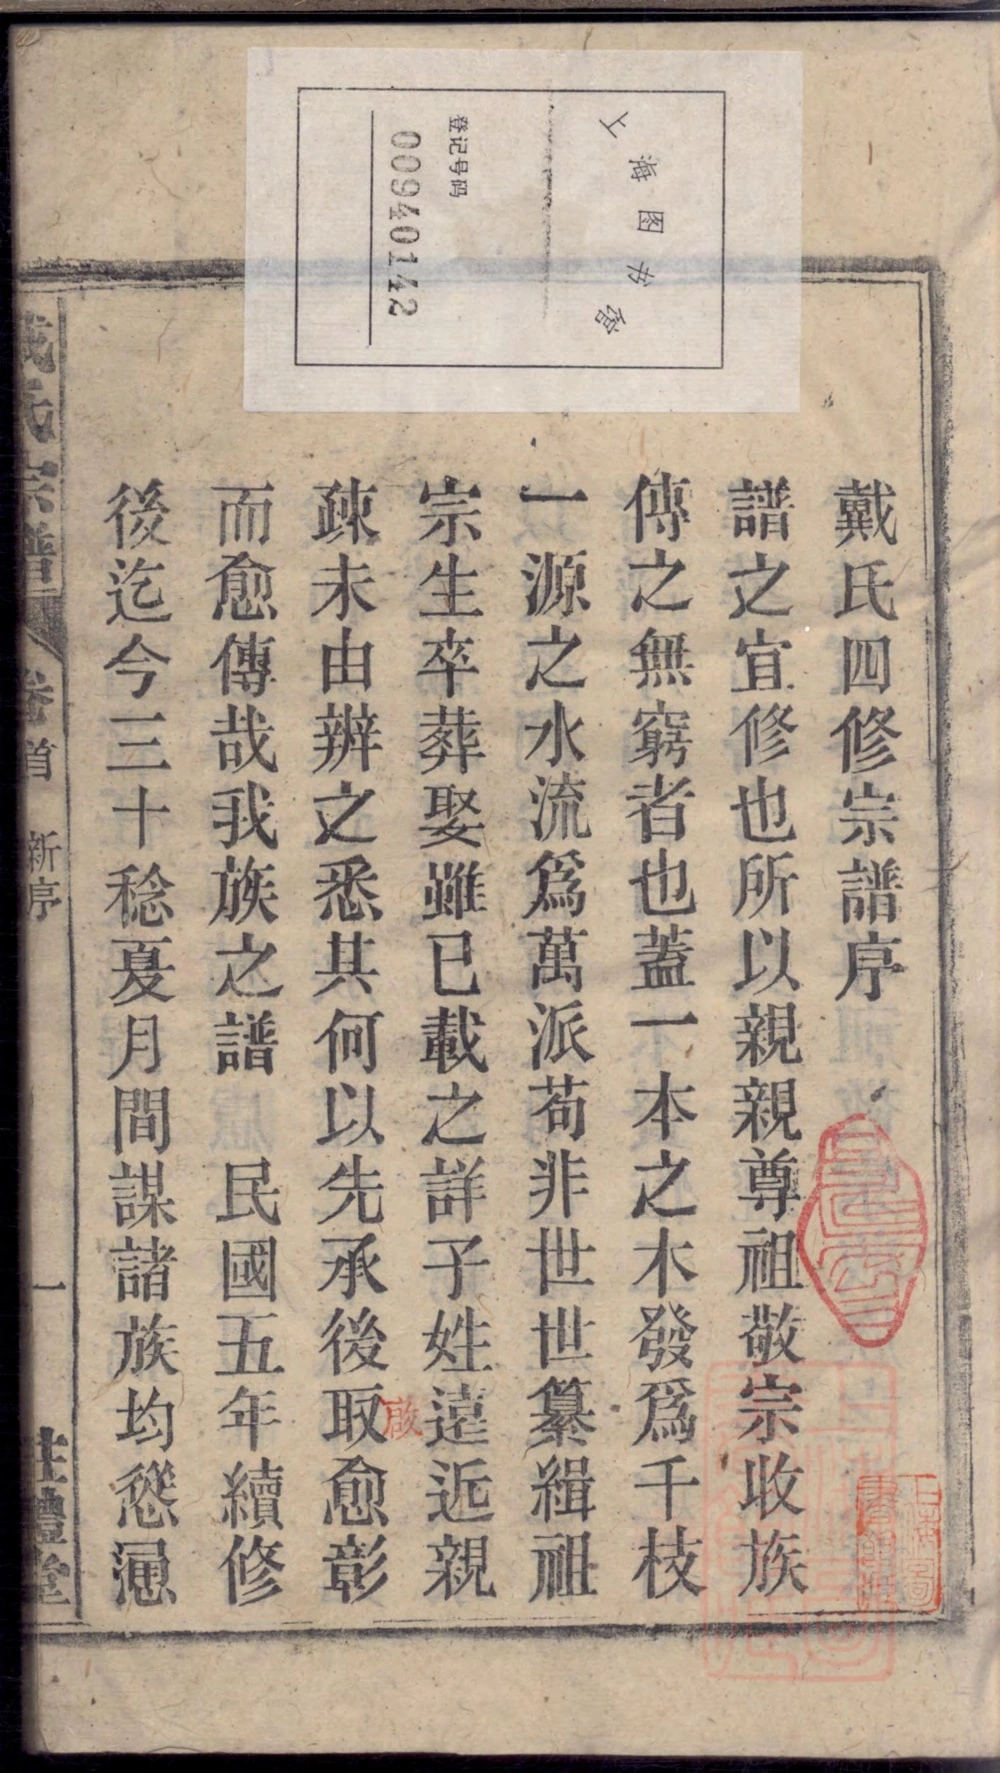 上海图书馆
登记号码
00940142
戴氏四修宗譜序
譜之宜修也所以親親尊祖敬宗收族
傳之無窮者也蓋一本之木發爲千枝
一源之水流爲萬派苟非世世纂緝祖
宗生卒葬娶雖已載之詳子姓遠近親
疎未由辨之悉其何以先承後取愈彰
啟
而愈傳哉我族之譜　民國五年續修
後迄今三十稔夏月間謀諸族均慫慂
戴氏宗譜 卷首 新序 一 禮堂